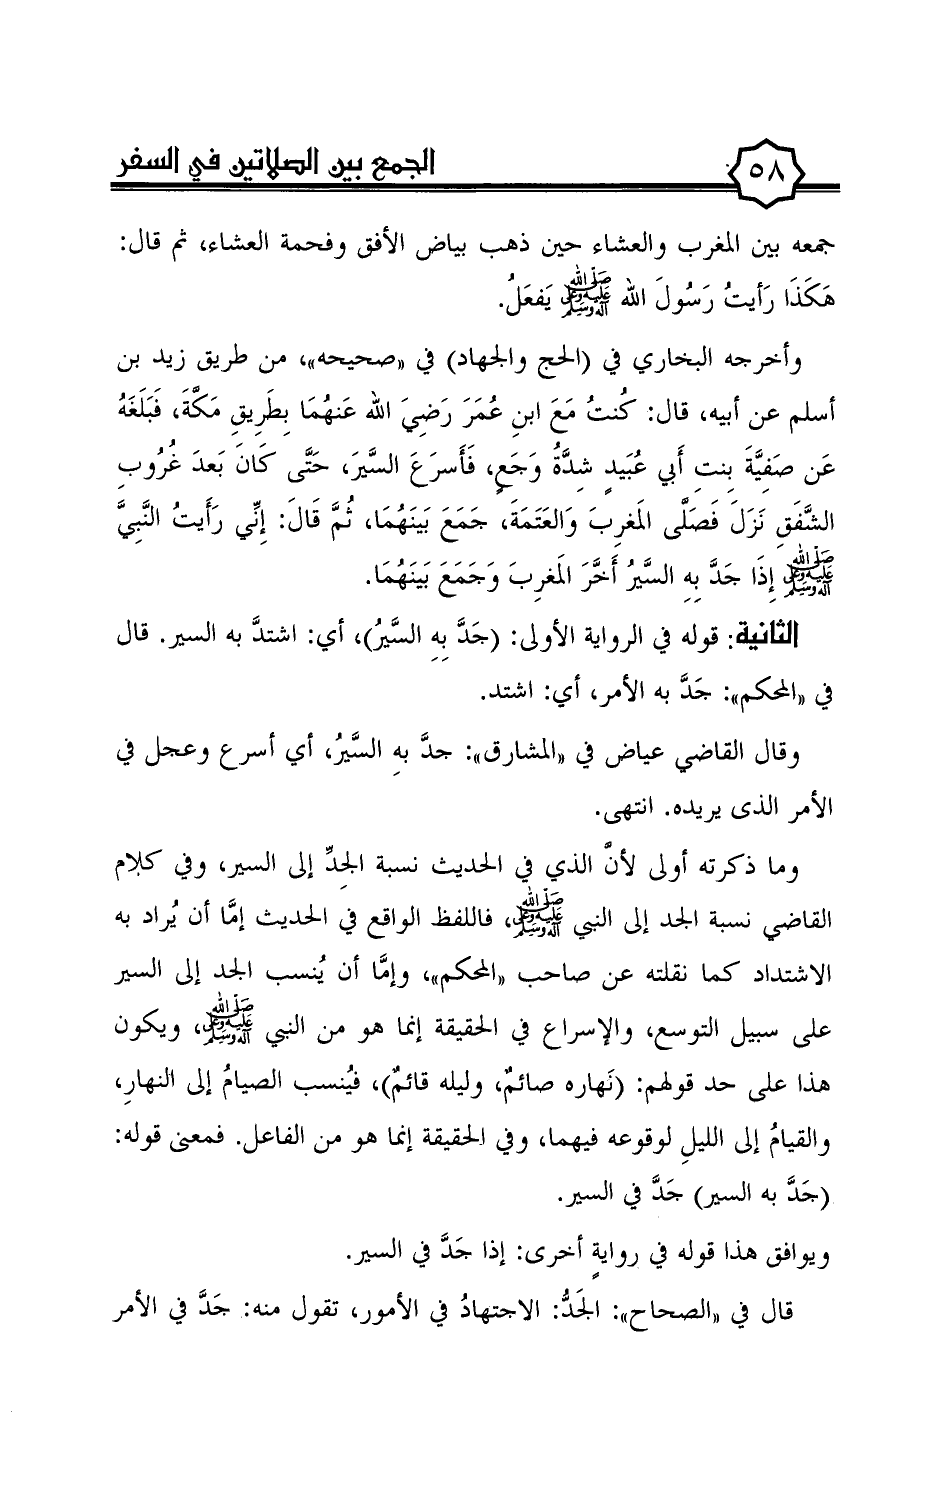 الجمع بين الصلاتين في السفر ٥٨
جمعه بين المغرب والعشاء حين ذهب بياض الأفق وفحمة العشاء، ثم قال:
هَكَذَا رَأيتُ رَسُولَ الله ﷺ يَفعَلُ.
وأخرجه البخاري في (الحج والجهاد) في «صحيحه»، من طريق زيد بن
أسلم عن أبيه، قال: كُنتُ مَعَ ابنِ عُمَرَ رَضِيَ الله عَنهُمَا بِطَرِيقِ مَكَّةَ، فَبَلَغَهُ
عَن صَفِيَّةَ بِنتِ أَبي عُبَيدٍ شِدَّةُ وَجَعٍ، فَأَسرَعَ السَّيرَ، حَتَّى كَانَ بَعدَ غُرُوبِ
الشَّفَقِ نَزَلَ فَصَلَّى المَغرِبَ وَالعَتَمَةَ، جَمَعَ بَينَهُمَا، ثُمَّ قَالَ: إِنِّي رَأَيتُ النَّبِيَّ
ﷺ إِذَا جَدَّ بِهِ السَّيرُ أَخَّرَ المَغرِبَ وَجَمَعَ بَينَهُمَا.
الثانية: قوله في الرواية الأولى: (جَدَّ بِهِ السَّيرُ)، أي: اشتدَّ به السير. قال
في «المحكم»: جَدَّ به الأمر، أي: اشتد.
وقال القاضي عياض في «المشارق»: جدَّ بِه السَّيرُ، أي أسرع وعجل في
الأمر الذى يريده. انتهى.
وما ذكرته أولى لأنَّ الذي في الحديث نسبة الجِدِّ إلى السير، وفي كلام
القاضي نسبة الجد إلى النبي ﷺ، فاللفظ الواقع في الحديث إمَّا أن يُراد به
الاشتداد كما نقلته عن صاحب «المحكم»، وإمَّا أن يُنسب الجد إلى السير
على سبيل التوسع، والإسراع في الحقيقة إنما هو من النبي ﷺ، ويكون
هذا على حد قولهم: (نَهاره صائمٌ، وليله قائمٌ)، فيُنسب الصيامُ إلى النهارِ،
والقيامُ إلى الليلِ لوقوعه فيهما، وفي الحقيقة إنما هو من الفاعل. فمعنى قوله:
(جَدَّ به السير) جَدَّ في السير.
ويوافق هذا قوله في روايةٍ أخرى: إذا جَدَّ في السير.
قال في «الصحاح»: الجَدُّ: الاجتهادُ في الأمور، تقول منه: جَدَّ في الأمر